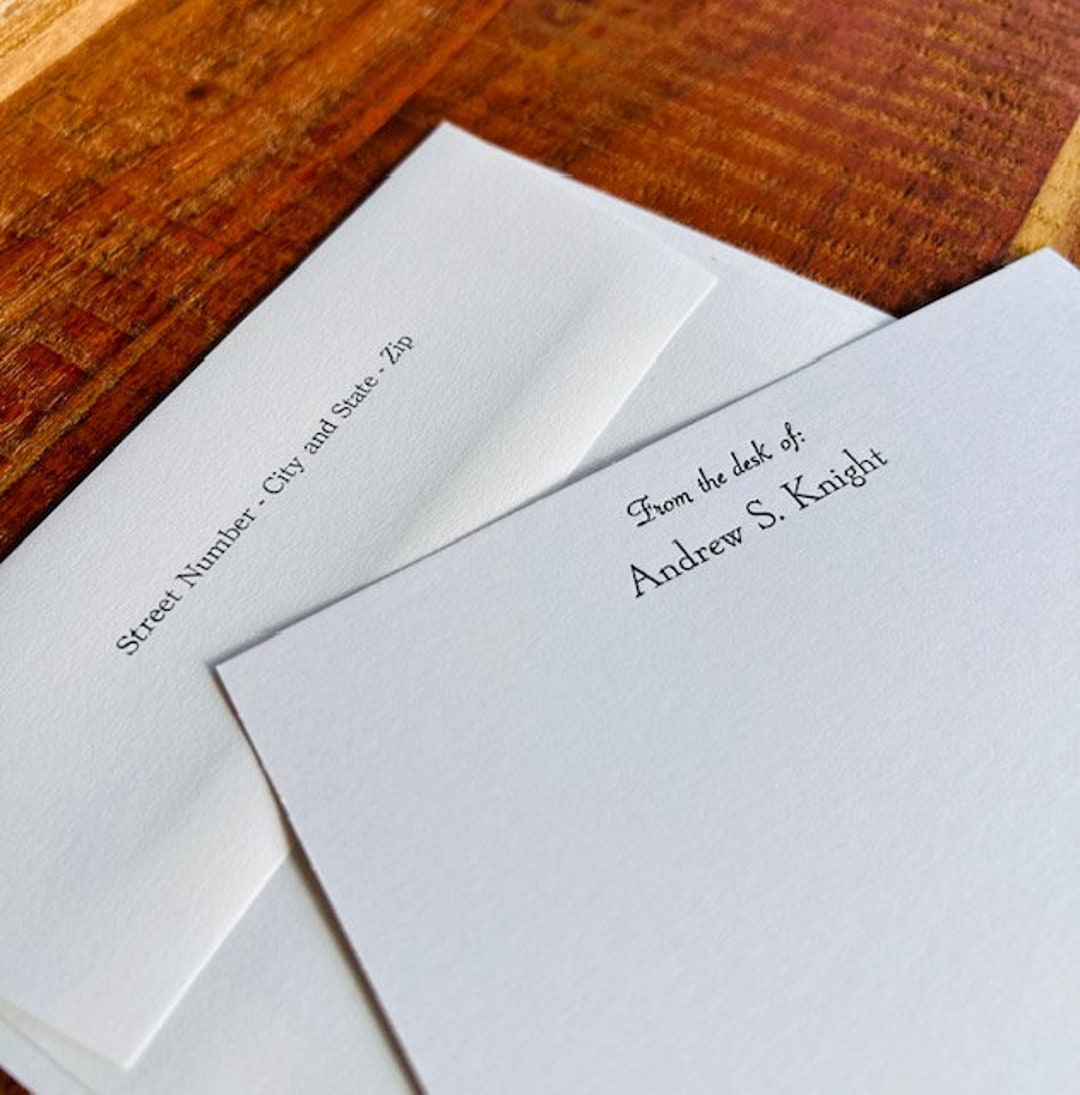 Street Number - City and State - Zip
From the desk of:
Andrew S. Knight